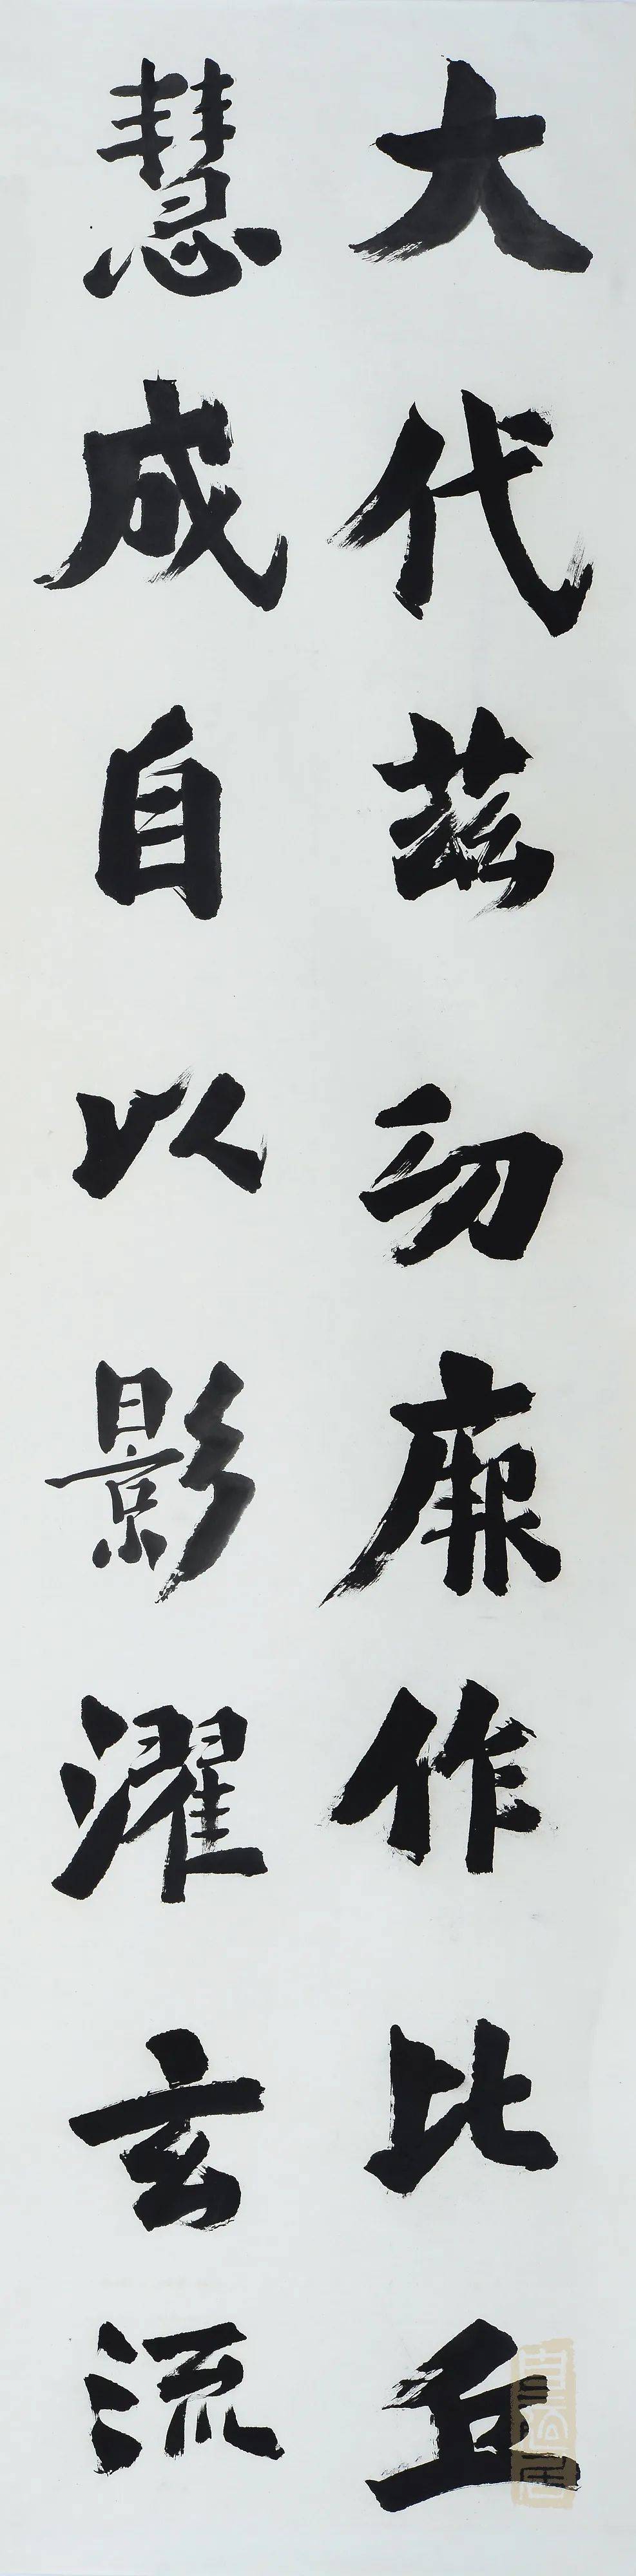 大代茲功厥作比丘
慧成自以影濯玄流